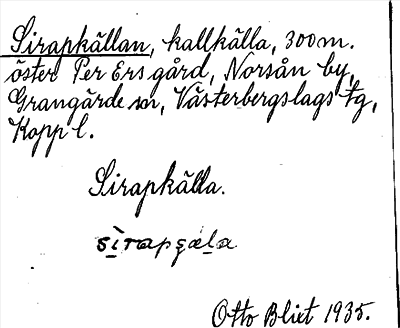 Sirapkällan, kallkälla, 300 m.
öster Per Ers gård, Norsån by,
Grangärde sn, Västerbergslags tg,
Kopp l.
Sirapkälla.
sìrapçæla
Otto Blixt 1935.